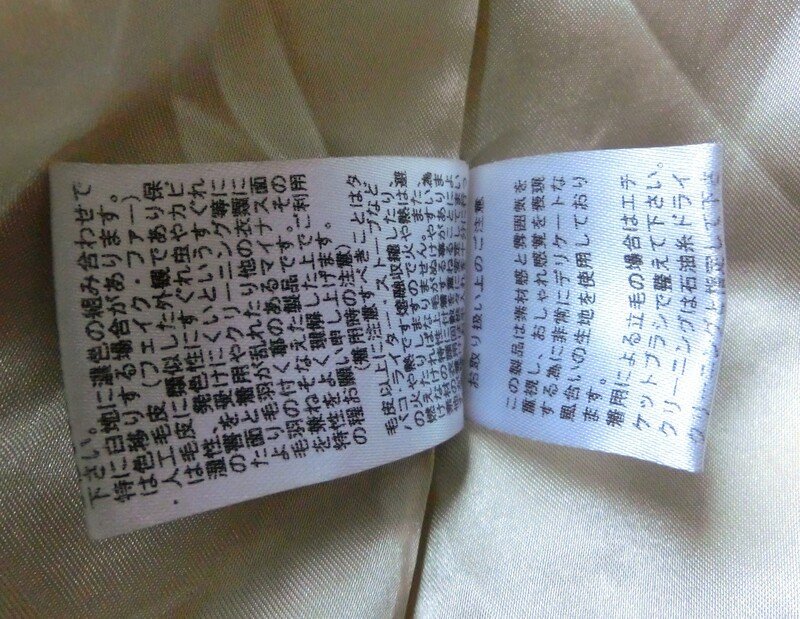 下さい。
特に白地に濃色の組み合わせで
は色移りする場合があります。
・人工毛皮（フェイク・ファー）
は毛皮に類似した外観であり保
温性、発色性にすぐれ虫やカビ
の害を受けにくいというすぐれ
た面と着用やクリーニング等に
より毛羽が乱れたり他の衣類に
毛羽の付く事のあるマイナス面
を兼ねそなえた製品です。その
特性をよく理解した上でご利用
の程お願い申し上げます。
（着用時の注意）
毛皮以上に注意すべきことはタ
バコ・ライター・ストーブなど
の火や熱です。
火や熱は避
お取り扱い上のご注意
この製品は素材感と雰囲気を
重視し、おしゃれ感覚を表現
する為に非常にデリケートな
風合いの生地を使用しており
ます。
着用による立毛の場合はエチ
ケットブラシで整えて下さい。
クリーニングは石油系ドライ
クリーニングと指定して下さ